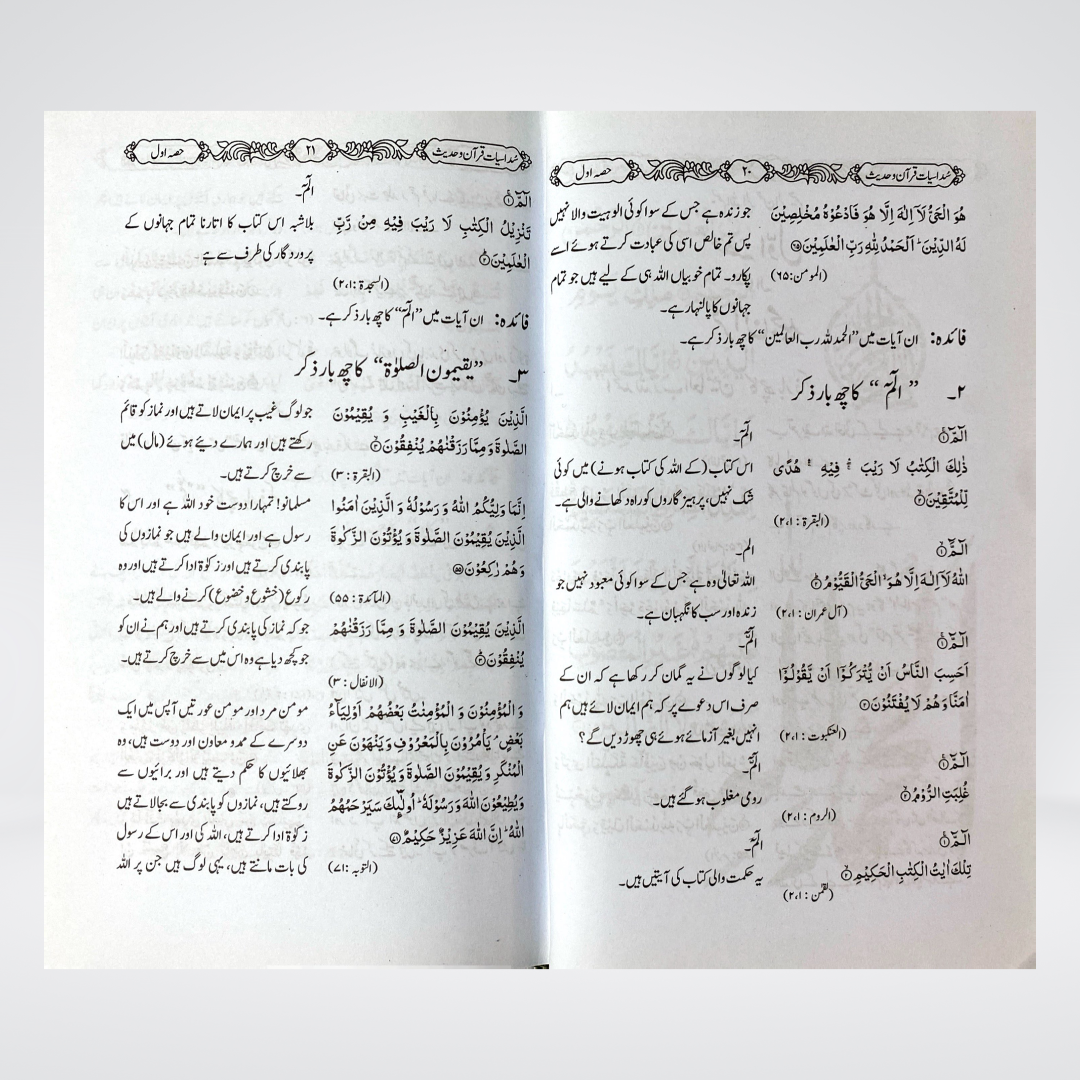 سُداسیات قرآن و حدیث
۲۰
حصہ اول
هُوَ الْحَىُّ لَآ اِلٰهَ اِلَّا هُوَ فَادْعُوْهُ مُخْلِصِيْنَ
لَهُ الدِّيْنَ ؕ اَلْحَمْدُ لِلّٰهِ رَبِّ الْعٰلَمِيْنَ ﴿۶۵﴾
(المومن: ۶۵)
جو زندہ ہے جس کے سوا کوئی الوہیت والا نہیں
پس تم خالص اسی کی عبادت کرتے ہوئے اسے
پکارو۔ تمام خوبیاں اللہ ہی کے لیے ہیں جو تمام
جہانوں کا پالنہار ہے۔
فائدہ: ان آیات میں ”الحمد للہ رب العالمین“ کا چھ بار ذکر ہے۔
۲۔ ”الٓمّٓ“ کا چھ بار ذکر
الٓمّٓ ﴿۱﴾
ذٰلِكَ الْكِتٰبُ لَا رَيْبَ ۛ فِيْهِ ۛ هُدًى
لِّلْمُتَّقِيْنَ ﴿۲﴾
(البقرة: ۲،۱)
الٓمٓ۔
اس کتاب (کے اللہ کی کتاب ہونے) میں کوئی
شک نہیں، پرہیزگاروں کو راہ دکھانے والی ہے۔
الٓمّٓ ﴿۱﴾
اللّٰهُ لَآ اِلٰهَ اِلَّا هُوَ ۙ الْحَىُّ الْقَيُّوْمُ ﴿۲﴾
(آل عمران: ۲،۱)
الم۔
اللہ تعالیٰ وہ ہے جس کے سوا کوئی معبود نہیں جو
زندہ اور سب کا نگہبان ہے۔
الٓمّٓ ﴿۱﴾
اَحَسِبَ النَّاسُ اَنْ يُّتْرَكُوْٓا اَنْ يَّقُوْلُوْٓا
اٰمَنَّا وَهُمْ لَا يُفْتَنُوْنَ ﴿۲﴾
(العنکبوت: ۲،۱)
الٓمّٓ۔
کیا لوگوں نے یہ گمان کر رکھا ہے کہ ان کے
صرف اس دعوے پر کہ ہم ایمان لائے ہیں ہم
انہیں بغیر آزمائے ہوئے ہی چھوڑ دیں گے؟
الٓمّٓ ﴿۱﴾
غُلِبَتِ الرُّوْمُ ﴿۲﴾
(الروم: ۲،۱)
الٓمّٓ۔
رومی مغلوب ہو گئے ہیں۔
الٓمّٓ ﴿۱﴾
تِلْكَ اٰيٰتُ الْكِتٰبِ الْحَكِيْمِ ﴿۲﴾
(لقمٰن: ۲،۱)
الٓمٓ۔
یہ حکمت والی کتاب کی آیتیں ہیں۔
سُداسیات قرآن و حدیث
۲۱
حصہ اول
الٓمّٓ ﴿۱﴾
تَنْزِيْلُ الْكِتٰبِ لَا رَيْبَ فِيْهِ مِنْ رَّبِّ
الْعٰلَمِيْنَ ﴿۲﴾
(السجدة: ۲،۱)
الٓمّٓ۔
بلاشبہ اس کتاب کا اتارنا تمام جہانوں کے
پروردگار کی طرف سے ہے۔
فائدہ: ان آیات میں ”الٓمّٓ“ کا چھ بار ذکر ہے۔
۳۔ ”یقیمون الصلوٰة“ کا چھ بار ذکر
الَّذِيْنَ يُؤْمِنُوْنَ بِالْغَيْبِ وَ يُقِيْمُوْنَ
الصَّلٰوةَ وَ مِمَّا رَزَقْنٰهُمْ يُنْفِقُوْنَ ﴿۳﴾
(البقرة: ۳)
جو لوگ غیب پر ایمان لاتے ہیں اور نماز کو قائم
رکھتے ہیں اور ہمارے دیئے ہوئے (مال) میں
سے خرچ کرتے ہیں۔
اِنَّمَا وَلِيُّكُمُ اللّٰهُ وَ رَسُوْلُهٗ وَ الَّذِيْنَ اٰمَنُوا
الَّذِيْنَ يُقِيْمُوْنَ الصَّلٰوةَ وَ يُؤْتُوْنَ الزَّكٰوةَ
وَ هُمْ رٰكِعُوْنَ ﴿۵۵﴾
(المآئدة: ۵۵)
مسلمانو! تمہارا دوست خود اللہ ہے اور اس کا
رسول ہے اور ایمان والے ہیں جو نمازوں کی
پابندی کرتے ہیں اور زکوٰة ادا کرتے ہیں اور وہ
رکوع (خشوع و خضوع) کرنے والے ہیں۔
الَّذِيْنَ يُقِيْمُوْنَ الصَّلٰوةَ وَ مِمَّا رَزَقْنٰهُمْ
يُنْفِقُوْنَ ﴿۳﴾
(الانفال: ۳)
جو کہ نماز کی پابندی کرتے ہیں اور ہم نے ان کو
جو کچھ دیا ہے وہ اس میں سے خرچ کرتے ہیں۔
وَ الْمُؤْمِنُوْنَ وَ الْمُؤْمِنٰتُ بَعْضُهُمْ اَوْلِيَآءُ
بَعْضٍ ۘ يَاْمُرُوْنَ بِالْمَعْرُوْفِ وَ يَنْهَوْنَ عَنِ
الْمُنْكَرِ وَ يُقِيْمُوْنَ الصَّلٰوةَ وَ يُؤْتُوْنَ الزَّكٰوةَ
وَ يُطِيْعُوْنَ اللّٰهَ وَ رَسُوْلَهٗ ؕ اُولٰٓئِكَ سَيَرْحَمُهُمُ
اللّٰهُ ؕ اِنَّ اللّٰهَ عَزِيْزٌ حَكِيْمٌ ﴿۷۱﴾
(التوبہ: ۷۱)
مومن مرد اور مومن عورتیں آپس میں ایک
دوسرے کے ممد و معاون اور دوست ہیں، وہ
بھلائیوں کا حکم دیتے ہیں اور برائیوں سے
روکتے ہیں، نمازوں کو پابندی سے بجا لاتے ہیں
زکوٰة ادا کرتے ہیں، اللہ کی اور اس کے رسول
کی بات مانتے ہیں، یہی لوگ ہیں جن پر اللہ